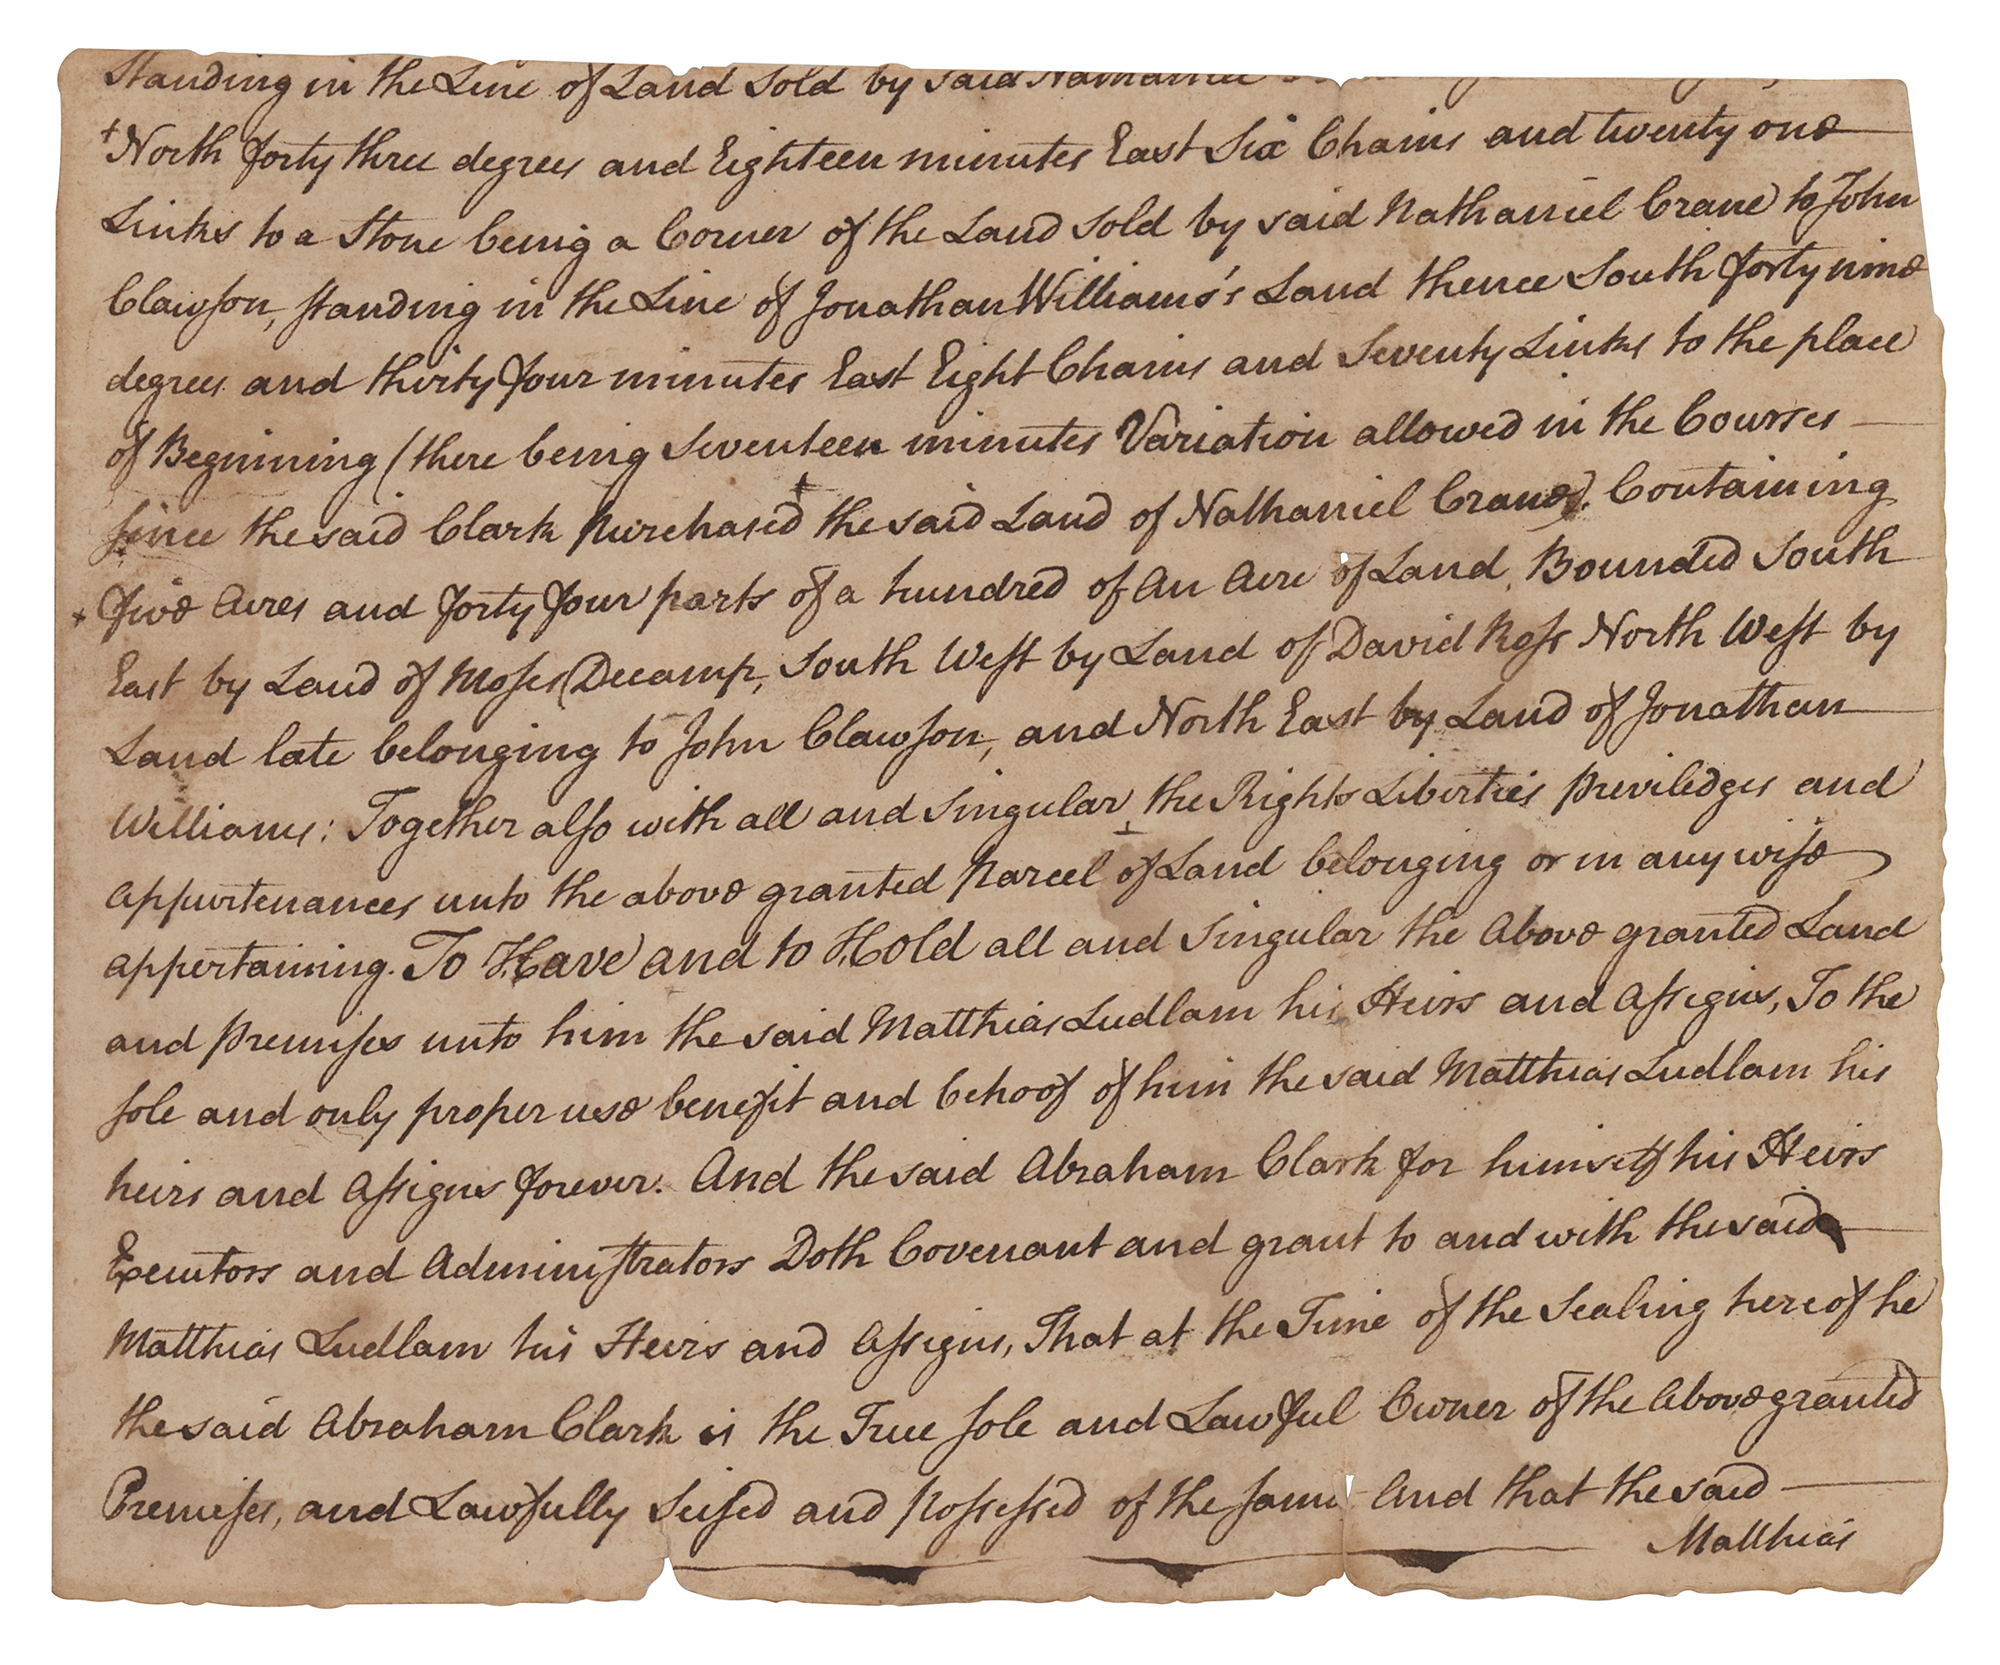 Standing in the Line of Land Sold by said Nathaniel
North forty three degrees and Eighteen minutes East Six Chains and twenty one
Links to a Stone being a Corner of the Land Sold by said Nathaniel Crane to John
Clawson, standing in the Line of Jonathan Williams's Land thence South forty nine
degrees and thirty four minutes East Eight Chains and Seventy Links to the place
of Beginning (there being Seventeen minutes Variation allowed in the Courses
since the said Clark purchased the said Land of Nathaniel Crane). Containing
five Acres and forty four parts of a hundred of an Acre of Land, Bounded South
East by Land of Moses Decamp, South West by Land of David Ross North West by
Land late belonging to John Clawson, and North East by Land of Jonathan
Williams: Together also with all and Singular, the Rights Liberties priviledges and
appurtenances unto the above granted parcel of Land belonging or in any wise
appertaining. To Have and to Hold all and Singular the Above granted Land
and premises unto him the said Matthias Ludlam his Heirs and Assigns, To the
sole and only proper use benefit and behoof of him the said Matthias Ludlam his
heirs and Assigns forever. And the said Abraham Clark for himself his Heirs
Executors and Administrators Doth Covenant and grant to and with the said
Matthias Ludlam his Heirs and Assigns, That at the Time of the Sealing hereof he
the said Abraham Clark is the True sole and Lawful Owner of the Above granted
Premises, and Lawfully Seised and possessed of the same And that the said
Matthias